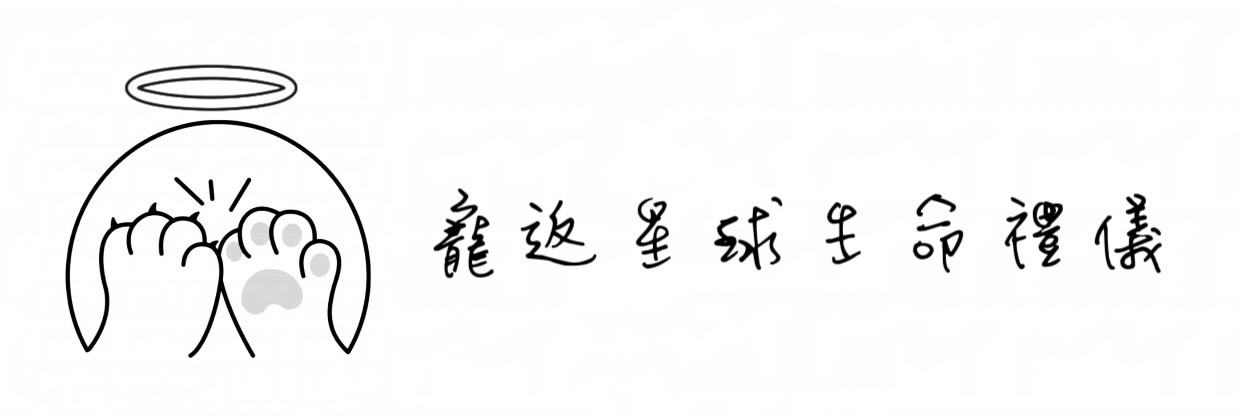 寵返星球生命禮儀